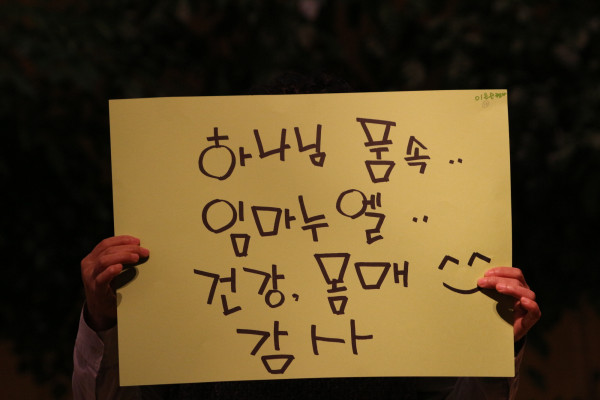 하나님 품속..
임마누엘..
건강, 몸매
감사